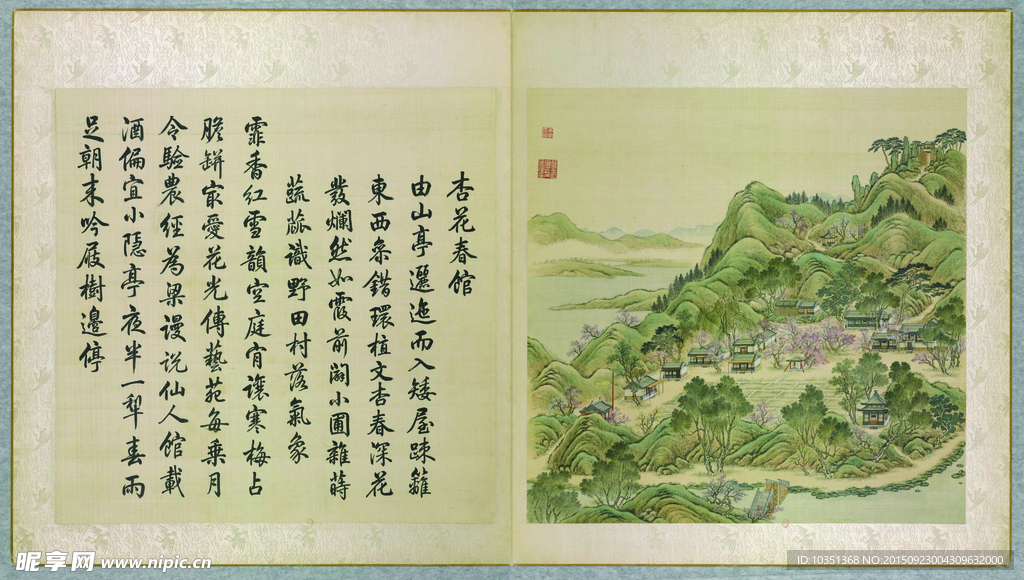 杏花春館
由山亭邐迤而入矮屋疎籬
東西參錯環植文杏春深花
發爛然如霞前闢小圃雜蒔
蔬蓏識野田村落氣象
霏香紅雪韻空庭肎讓寒梅占
膽缾寂愛花光傳藝苑每乗月
令驗農經為梁謾說仙人館載
酒偏宜小隱亭夜半一犁春雨
足朝来吟屐樹邉停
昵享网 www.nipic.cn
ID:10351368 NO:20150923004309632000